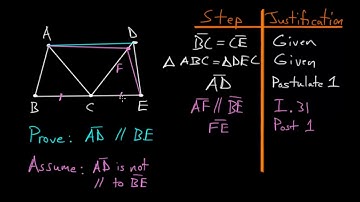 A
D
F
B
C
E
Prove: AD // BE
Assume: AD is not
// to BE
Step Justification
BC = CE Given
△ABC = △DEC Given
AD Postulate 1
AF // BE I.31
FE Post 1